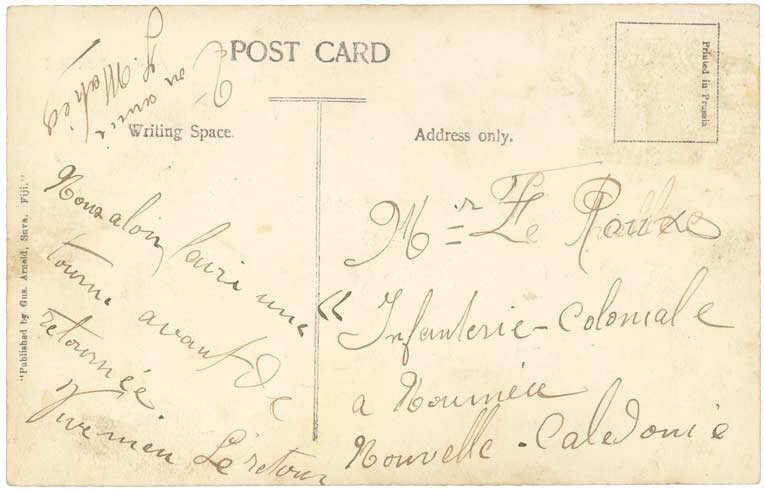 POST CARD
Printed in Prussia
Writing Space.
Address only.
"Published by Gus. Arnold, Suva, Fiji."
Ton ami
Nous alons faire une
tourne avant de
retournée
Le retour
Mr Le Roux
Infanterie-Coloniale
a Nouméa
Nouvelle-Caledonie